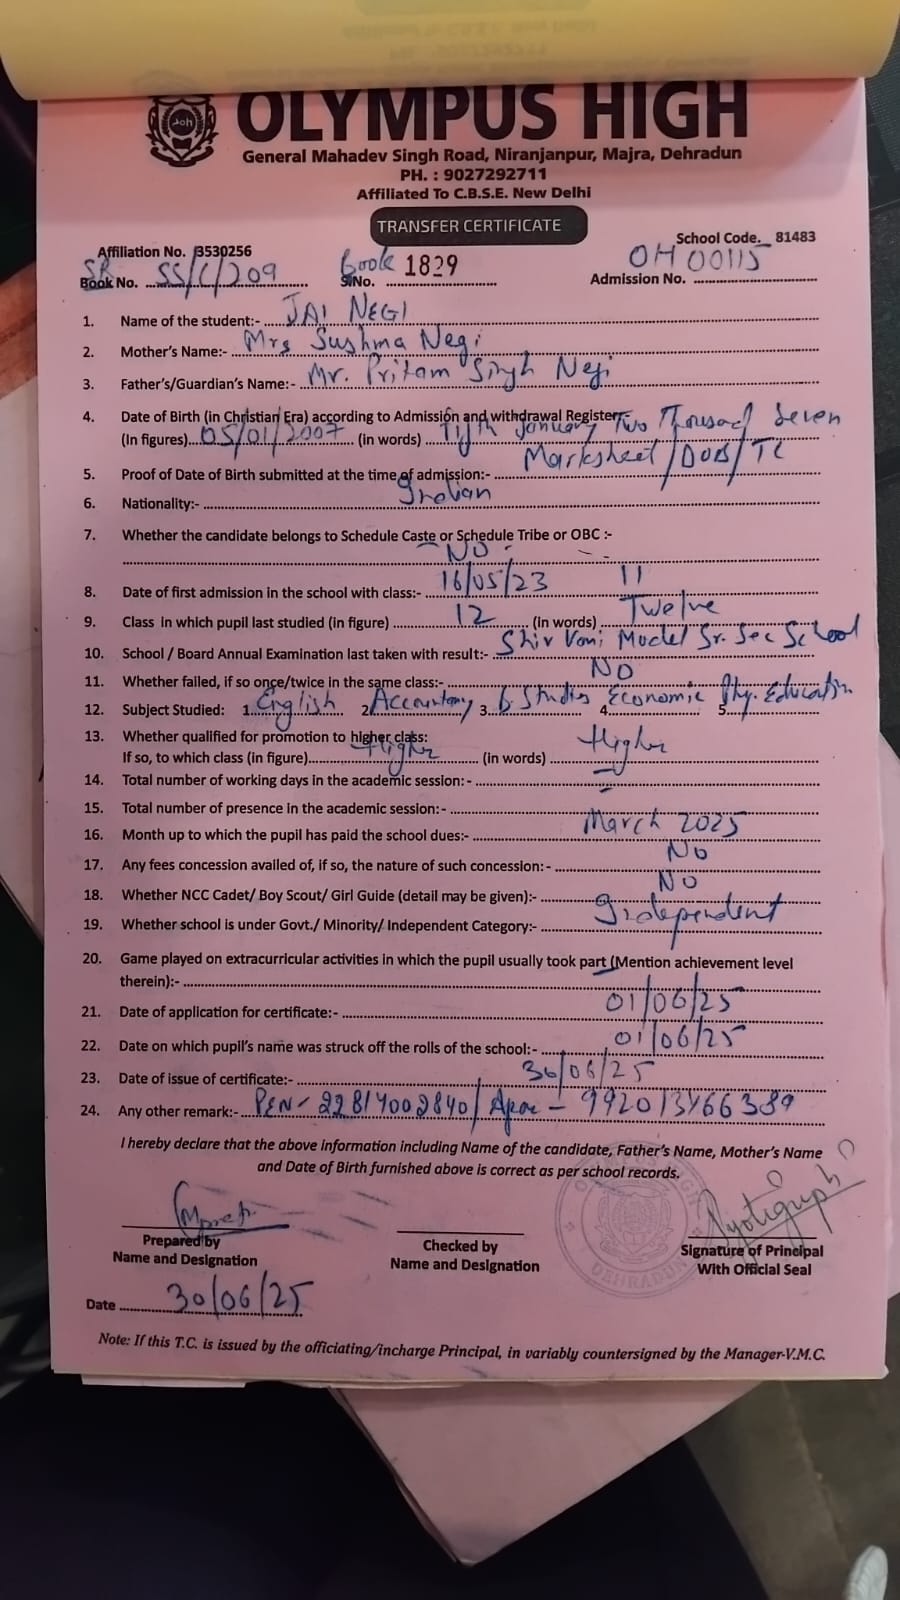 OLYMPUS HIGH
General Mahadev Singh Road, Niranjanpur, Majra, Dehradun
PH. : 9027292711
Affiliated To C.B.S.E. New Delhi
TRANSFER CERTIFICATE
Affiliation No. 3530256 School Code. 81483
SR Book No. SS/C/209 Book S.No. 1829 Admission No. OH 00115
1. Name of the student:- JAI NEGI
2. Mother's Name:- Mrs Sushma Negi
3. Father's/Guardian's Name:- Mr. Pritam Singh Negi
4. Date of Birth (in Christian Era) according to Admission and withdrawal Register:-
(In figures) 05/01/2007 (in words) Fifth January Two Thousand Seven
5. Proof of Date of Birth submitted at the time of admission:- Marksheet/DOB/TC
6. Nationality:- Indian
7. Whether the candidate belongs to Schedule Caste or Schedule Tribe or OBC :-
NO
8. Date of first admission in the school with class:- 16/05/23 11
9. Class in which pupil last studied (in figure) 12 (in words) Twelve
10. School / Board Annual Examination last taken with result:- Shiv Vani Model Sr. Sec School
11. Whether failed, if so once/twice in the same class:- NO
12. Subject Studied: 1. English 2. Accountancy 3. B. Studies 4. Economic 5. Phy. Education
13. Whether qualified for promotion to higher class:
If so, to which class (in figure) Higher (in words) Higher
14. Total number of working days in the academic session:- -
15. Total number of presence in the academic session:- -
16. Month up to which the pupil has paid the school dues:- March 2025
17. Any fees concession availed of, if so, the nature of such concession:- No
18. Whether NCC Cadet/ Boy Scout/ Girl Guide (detail may be given):- NO
19. Whether school is under Govt./ Minority/ Independent Category:- Independent
20. Game played on extracurricular activities in which the pupil usually took part (Mention achievement level
therein):-
21. Date of application for certificate:- 01/06/25
22. Date on which pupil's name was struck off the rolls of the school:- 01/06/25
23. Date of issue of certificate:- 30/06/25
24. Any other remark:- PEN - 22814002840/ Apar - 992013466389
I hereby declare that the above information including Name of the candidate, Father's Name, Mother's Name
and Date of Birth furnished above is correct as per school records.
Prepared by Checked by Signature of Principal
Name and Designation Name and Designation With Official Seal
Date 30/06/25
Note: If this T.C. is issued by the officiating/incharge Principal, in variably countersigned by the Manager-V.M.C.